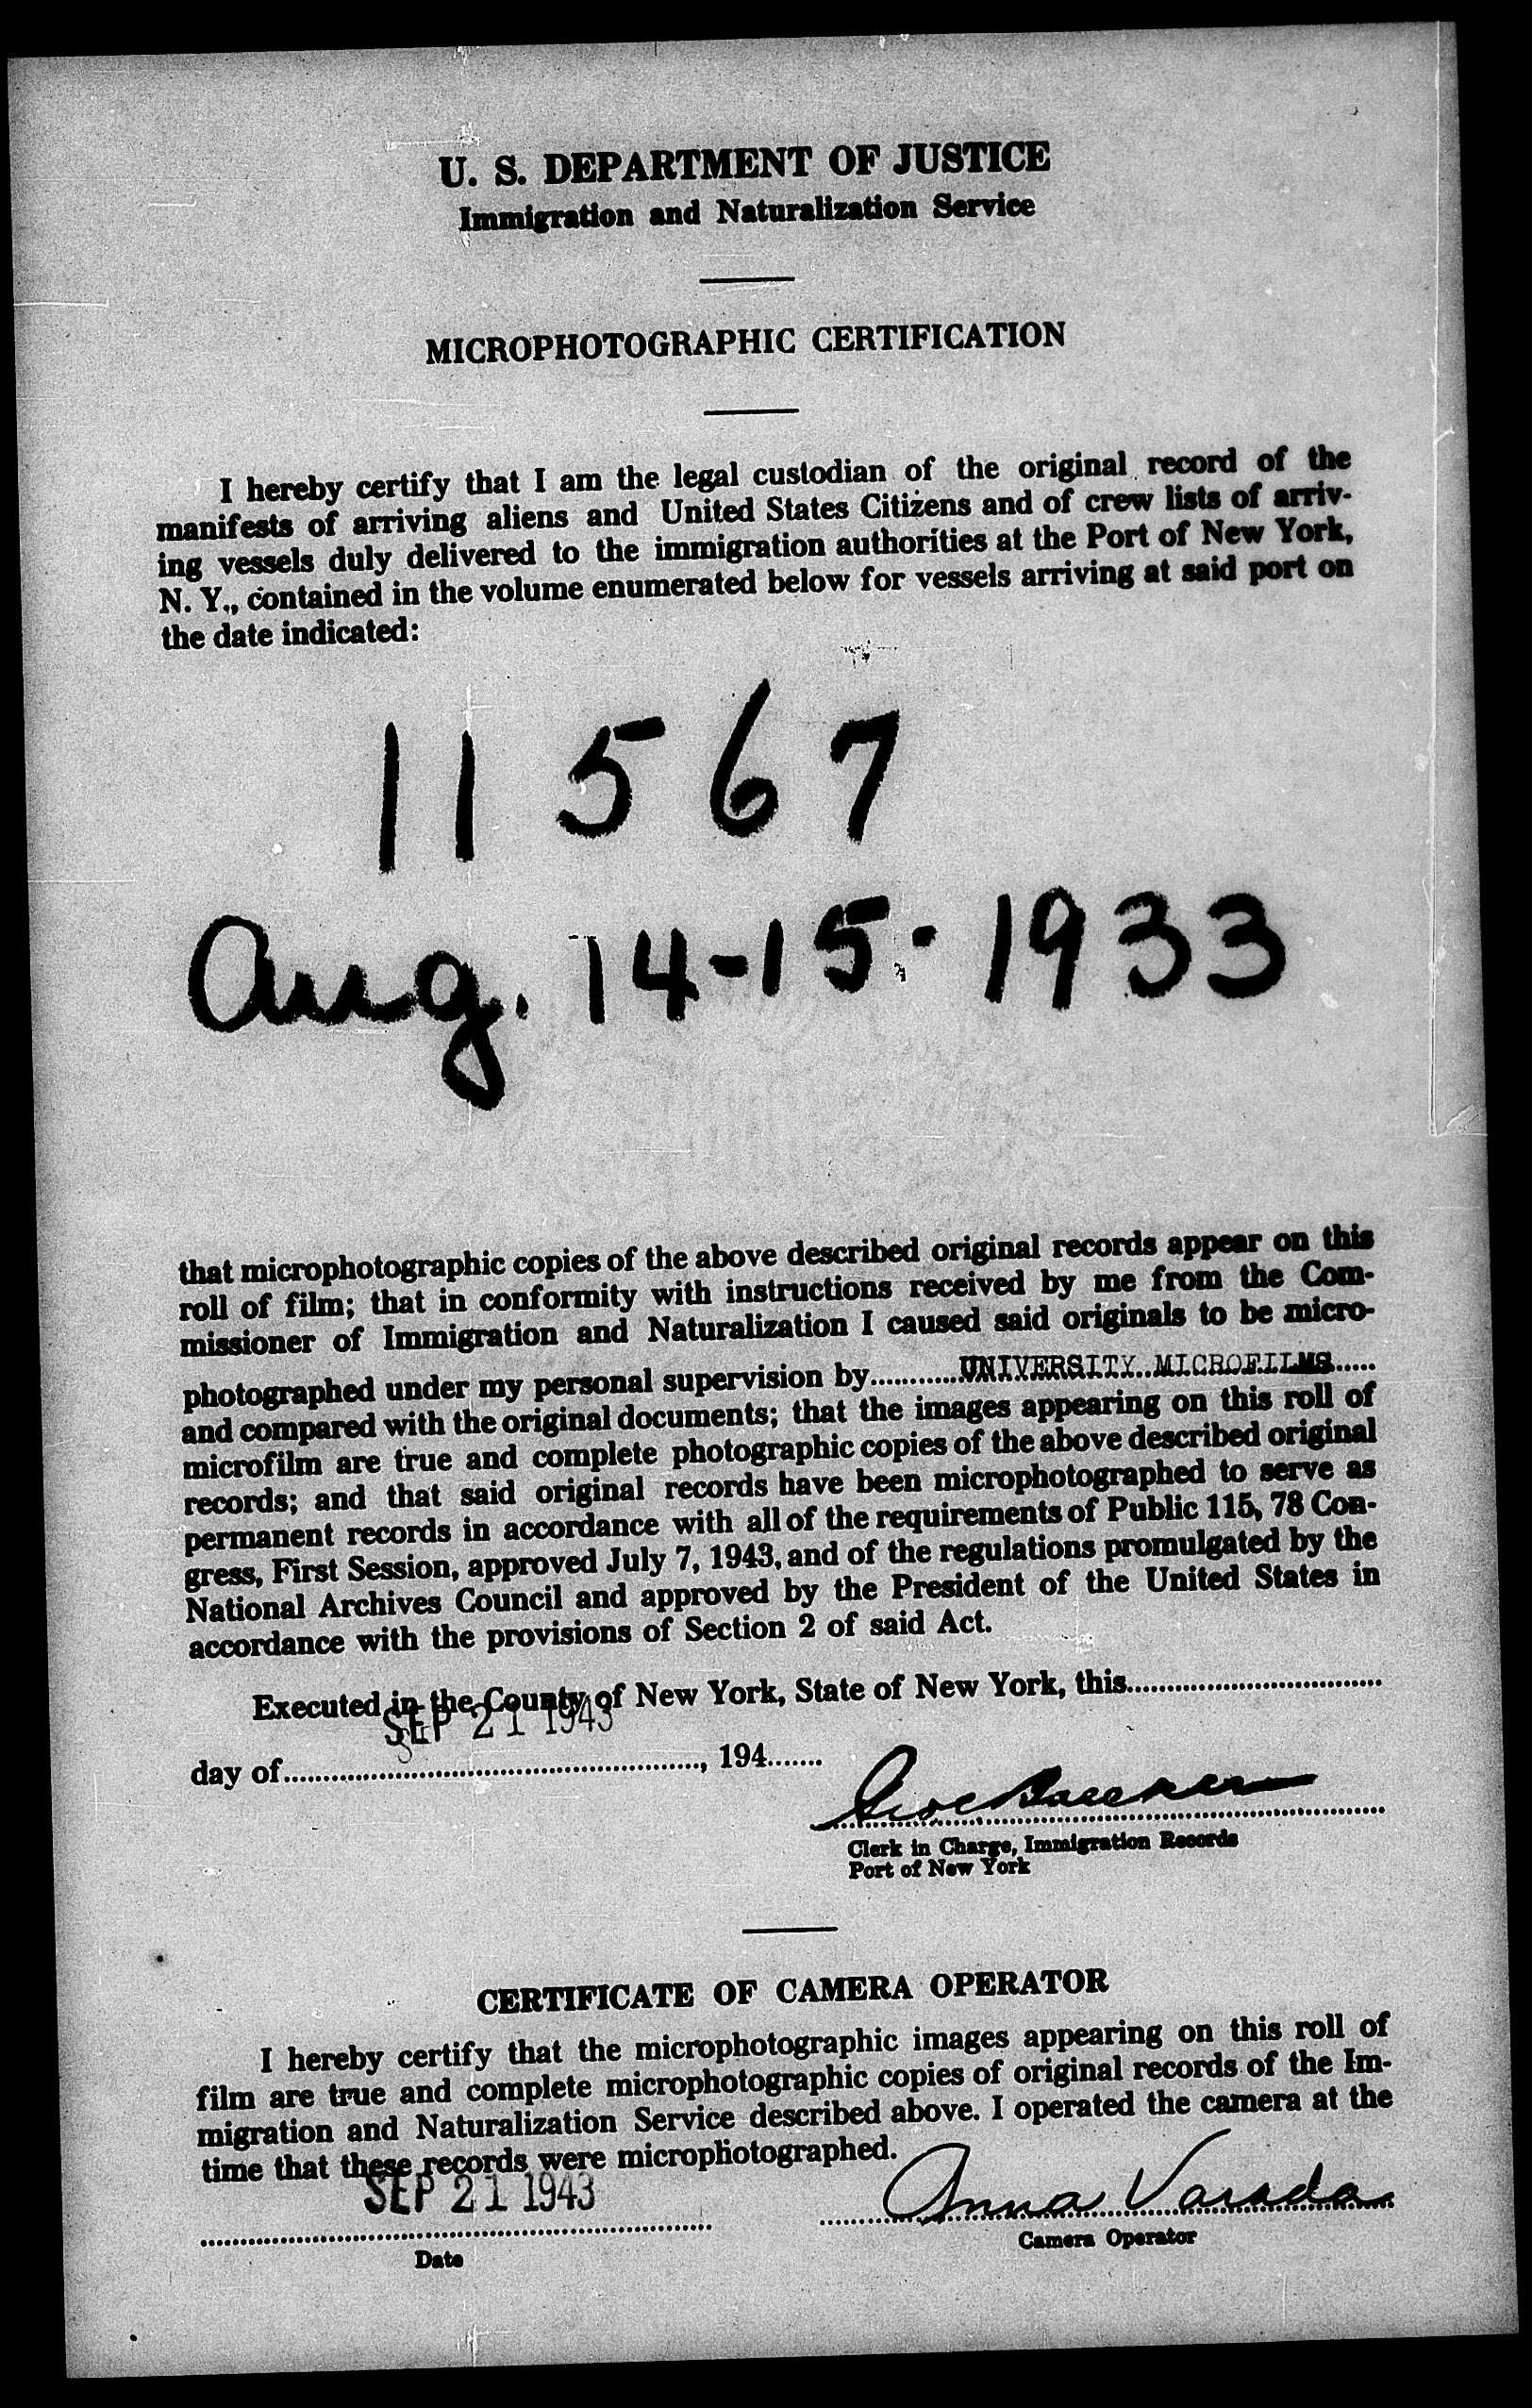 U. S. DEPARTMENT OF JUSTICE
Immigration and Naturalization Service
MICROPHOTOGRAPHIC CERTIFICATION
I hereby certify that I am the legal custodian of the original record of the
manifests of arriving aliens and United States Citizens and of crew lists of arriv-
ing vessels duly delivered to the immigration authorities at the Port of New York,
N. Y., contained in the volume enumerated below for vessels arriving at said port on
the date indicated:
11567
Aug. 14-15-1933
that microphotographic copies of the above described original records appear on this
roll of film; that in conformity with instructions received by me from the Com-
missioner of Immigration and Naturalization I caused said originals to be micro-
photographed under my personal supervision by...........UNIVERSITY MICROFILMS......
and compared with the original documents; that the images appearing on this roll of
microfilm are true and complete photographic copies of the above described original
records; and that said original records have been microphotographed to serve as
permanent records in accordance with all of the requirements of Public 115, 78 Con-
gress, First Session, approved July 7, 1943, and of the regulations promulgated by the
National Archives Council and approved by the President of the United States in
accordance with the provisions of Section 2 of said Act.
Executed in the County of New York, State of New York, this................................
SEP 21 1943
day of......................................................, 194.......
Clerk in Charge, Immigration Records
Port of New York
CERTIFICATE OF CAMERA OPERATOR
I hereby certify that the microphotographic images appearing on this roll of
film are true and complete microphotographic copies of original records of the Im-
migration and Naturalization Service described above. I operated the camera at the
time that these records were microphotographed.
SEP 21 1943
Anna Varada
Date
Camera Operator